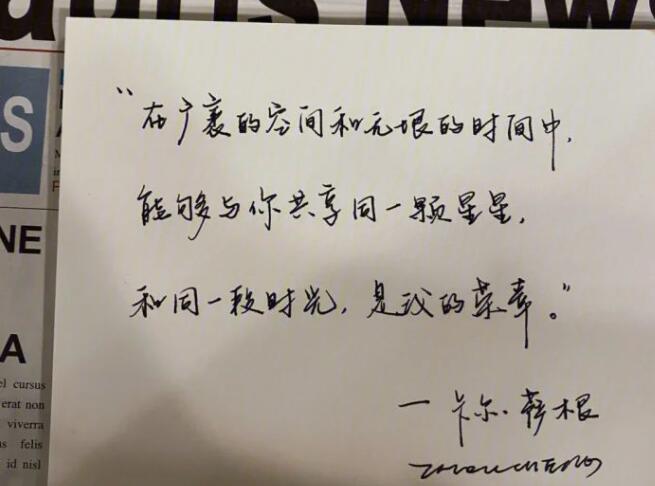 News
S
NE
A
el cursus
erat non
viverra
us felis
id nisl
“在广袤的空间和无垠的时间中,
能够与你共享同一颗星星,
和同一段时光,是我的荣幸。”
一卡尔·萨根